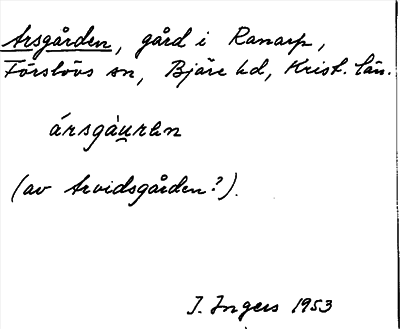 Arsgården, gård i Ranarp,
Förslövs sn, Bjäre hd, Krist. län.
ársgàu̯rən
(av Arvidsgården?).
I. Ingers 1953